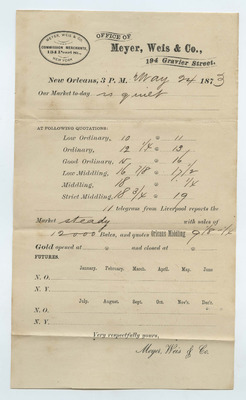 MEYER, WEIS & CO.
COMMISSION MERCHANTS,
NEW YORK
OFFICE OF
Meyer, Weis & Co.,
194 Gravier Street.
New Orleans, 3 P. M. May 24 1873
Our Market to-day is quiet
AT FOLLOWING QUOTATIONS:
Low Ordinary, 10 " 11
Ordinary, 12 1/4 " 13
Good Ordinary, 15 " 16
Low Middling, 16 7/8 " 17 1/2
Middling, 18 " 1/4
Strict Middling, 18 3/4 " 19
A telegram from Liverpool reports the
Market steady with sales of
12000 Bales, and quotes Orleans Middling
Gold opened at " and closed at
FUTURES.
January. February. March. April. May. June
N. O.
N. Y.
July. August. Sept. Oct. Nov'r. Dec'r.
N. O.
N. Y.
Very respectfully yours,
Meyer, Weis & Co.